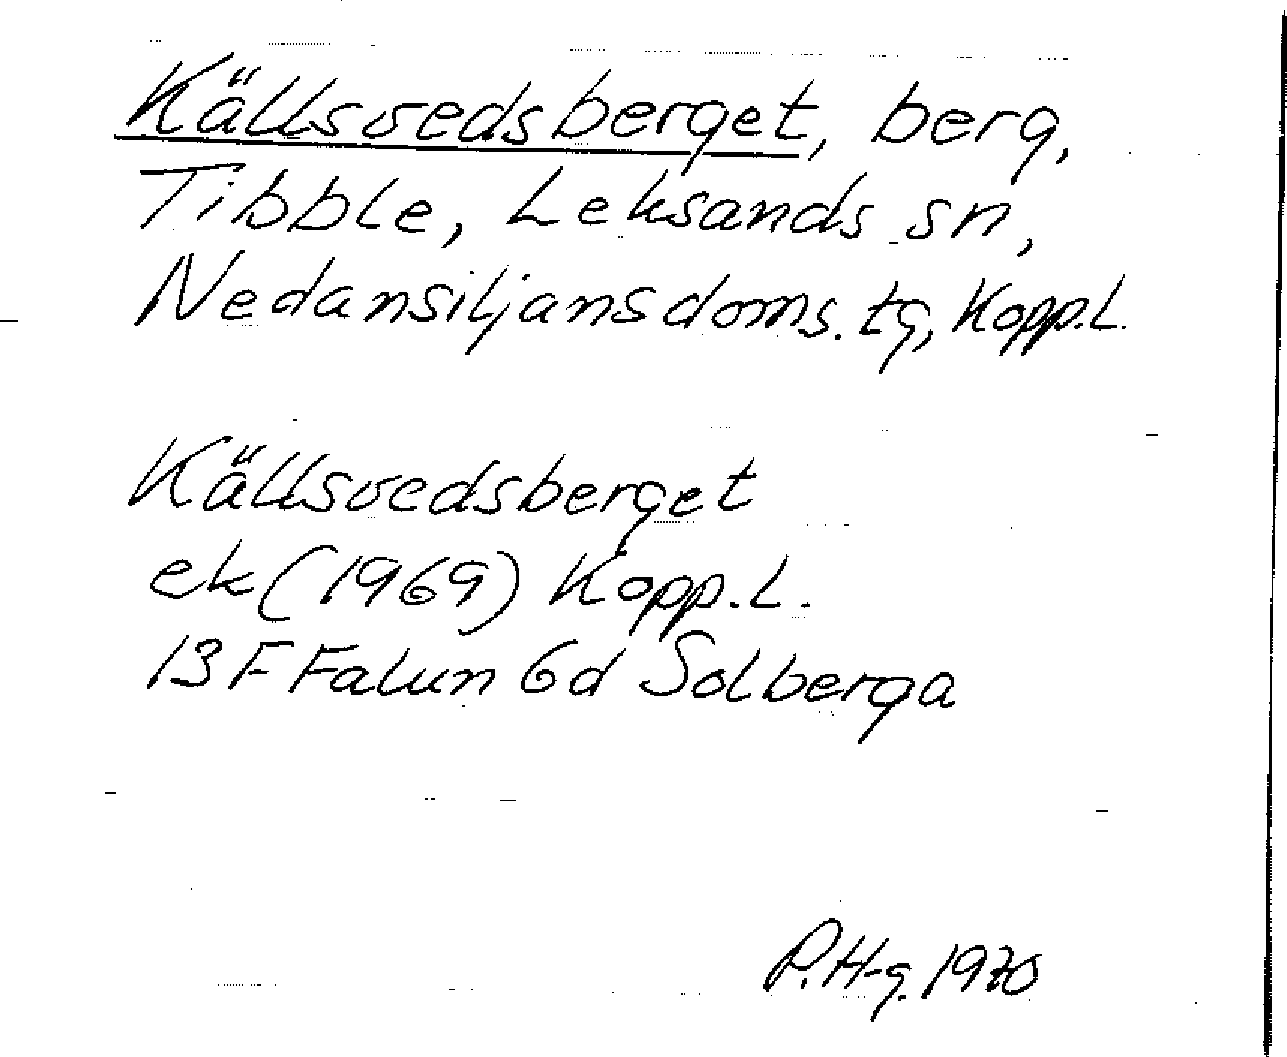 Källsvedsberget, berg,
Tibble, Leksands sn,
Nedansiljans doms. tg, Kopp.L.
Källsvedsberget
ek (1969) Kopp.L.
13F Falun 6d Solberga
P.H-g. 1970